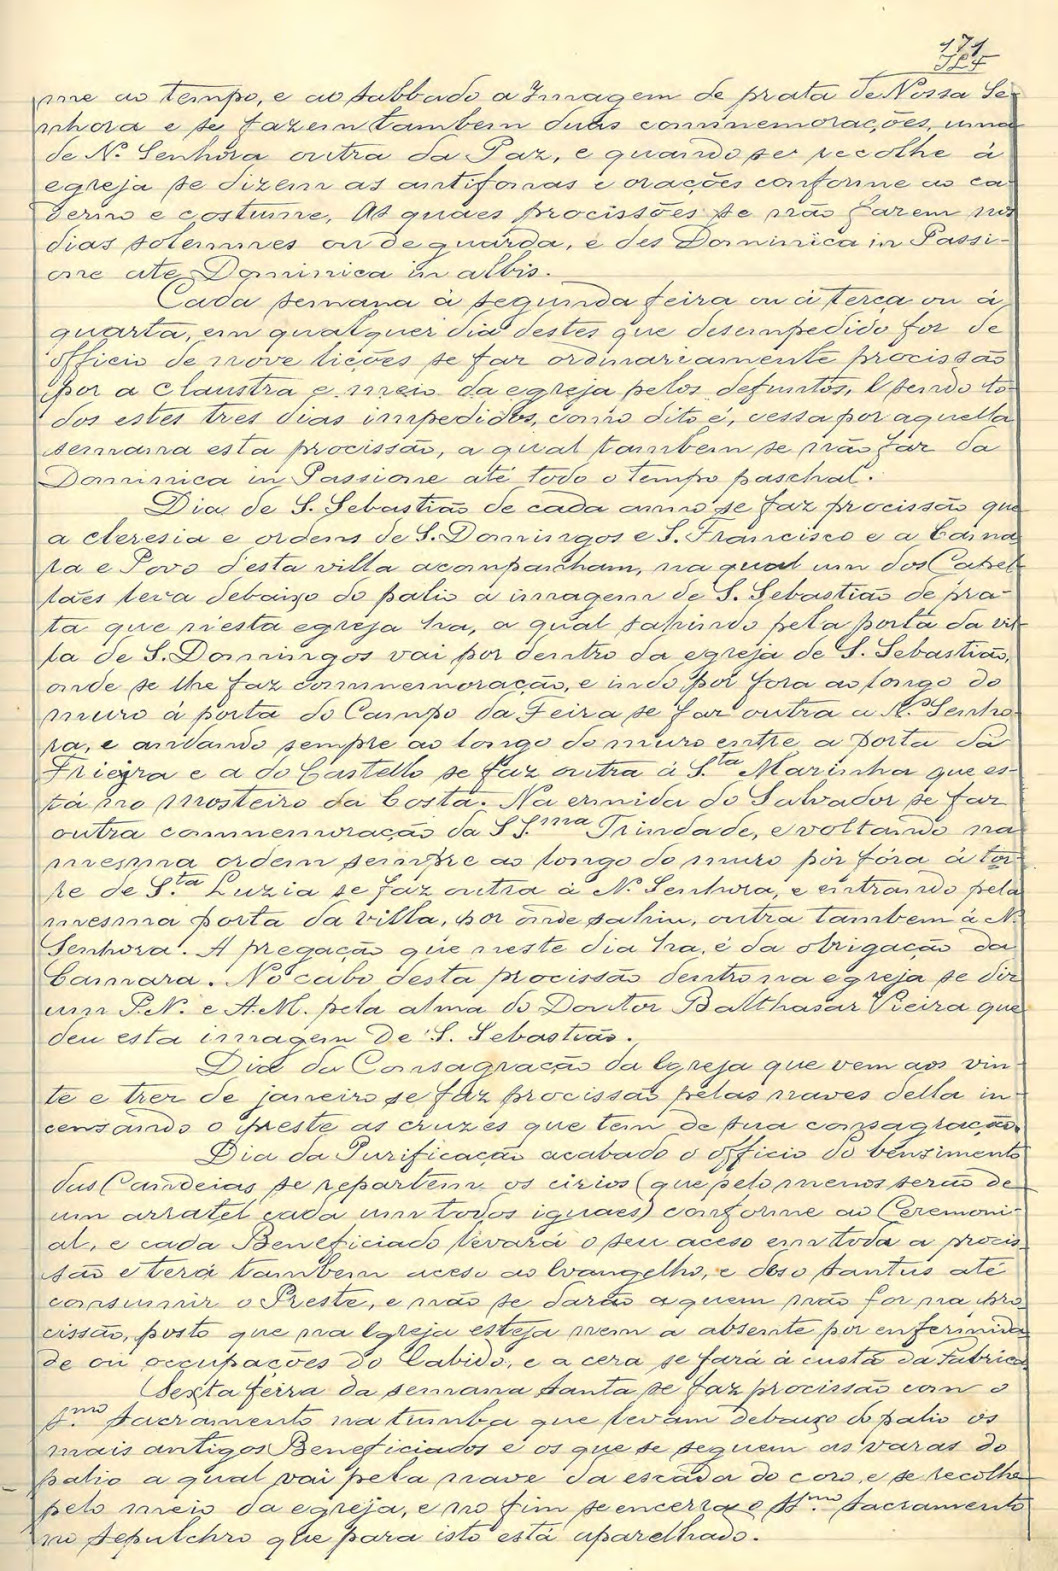 171
JLF
me ao tempo, e ao sabbado a Imagem de prata de Nossa Se-
nhora e se fazem tambem duas commemorações, uma
de N.ª Senhora outra da Paz, e quando se recolhe á
egreja se dizem as antifonas e orações conforme ao ca-
derno e costume, As quaes procissões se não fazem nos
dias solemnes ou de guarda, e des Dominica in Passi-
one ate Dominica in albis.
Cada semana á segunda feira ou á terça ou á
quarta, em qualquer dia destes que desempedido for de
officio de nove lições se faz ordinariamente procissão
por a claustra e meio da egreja pelos defuntos, E sendo to-
dos estes tres dias impedidos, como dito é, cessa por aquella
semana esta procissão, a qual tambem se não faz da
Dominica in Passione até todo o tempo paschal.
Dia de S. Sebastião de cada anno se faz procissão que
a cleresia e ordens de S. Domingos e S. Francisco e a Cama-
ra e Povo d'esta villa acompanham, na qual um dos Capel-
lães leva debaixo do palio a imagem de S. Sebastião de pra-
ta que n'esta egreja ha, a qual sahindo pela porta da vil-
la de S. Domingos vai por dentro da egreja de S. Sebastião,
onde se lhe faz commemoração, e indo por fora ao longo do
muro á porta do Campo da Feira se faz outra a N.ª Senho-
ra, e andando sempre ao longo do muro entre a porta da
Freiria e a do Castello se faz outra á S.ta Marinha que es-
tá no Mosteiro da Costa. Na ermida do Salvador se faz
outra commemoração da SS.ma Trindade, e voltando na
mesma ordem sempre ao longo do muro por fóra á tor-
re de S.ta Luzia se faz outra á N.ª Senhora, e entrando pela
mesma porta da villa, por onde sahiu, outra tambem á N.
Senhora. A pregação que neste dia ha, é da obrigação da
Camara. No cabo desta procissão dentro na egreja se diz
um P.N. e A.M. pela alma do Doutor Balthasar Vieira que
deu esta imagem De S. Sebastião.
Dia da Consagração da Egreja que vem aos vin-
te e trez de janeiro se faz procissão pelas naves della in-
censando o preste as cruzes que tem de sua consagração.
Dia da Purificação acabado o officio do benzimento
das Candeias se repartem os cirios (que pelo menos serão de
um arratel cada um todos iguaes) conforme ao Ceremoni-
al, e cada Beneficiado levará o seu aceso em toda a procis-
são e terá tambem aceso ao Evangelho, e des o Santus até
consumir o Preste, e não se darão a quem não for na pro-
cissão, posto que na Egreja esteja nem a absente por enfermida-
de ou occupações do Cabido, e a cera se fará á custa da Fabrica
Sexta feira da semana Santa se faz procissão com o
S.mo Sacramento na tumba que levam debaixo do palio os
mais antigos Beneficiados e os que se seguem as varas do
palio a qual vai pela nave da escada do coro, e se recolhe
pelo meio da egreja, e no fim se encerra o SS.mo Sacramento
no sepulchro que para isto está aparelhado.